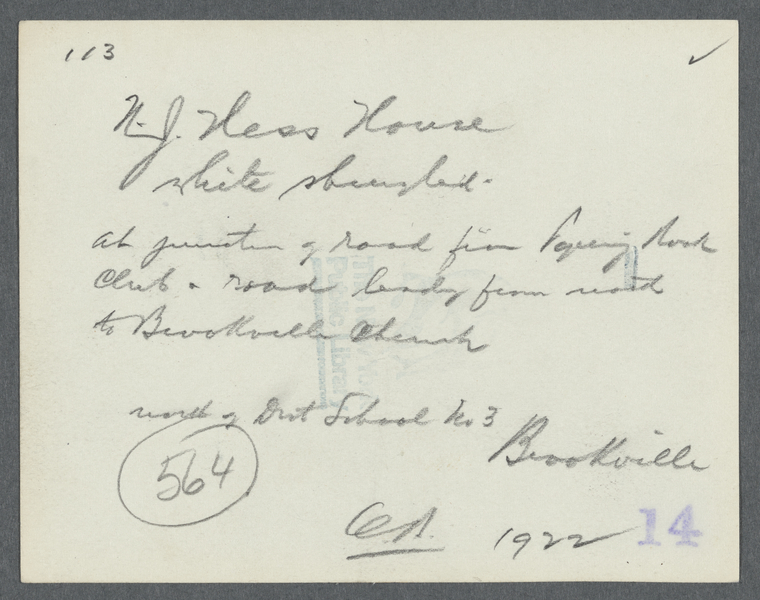 113 ✓
N. J. Hess House
white shingled.
at junction of road from Piping Rock
Club & road leadg from north
to Brookville Church
north of Dist School No 3
Brookville
564
1922
14